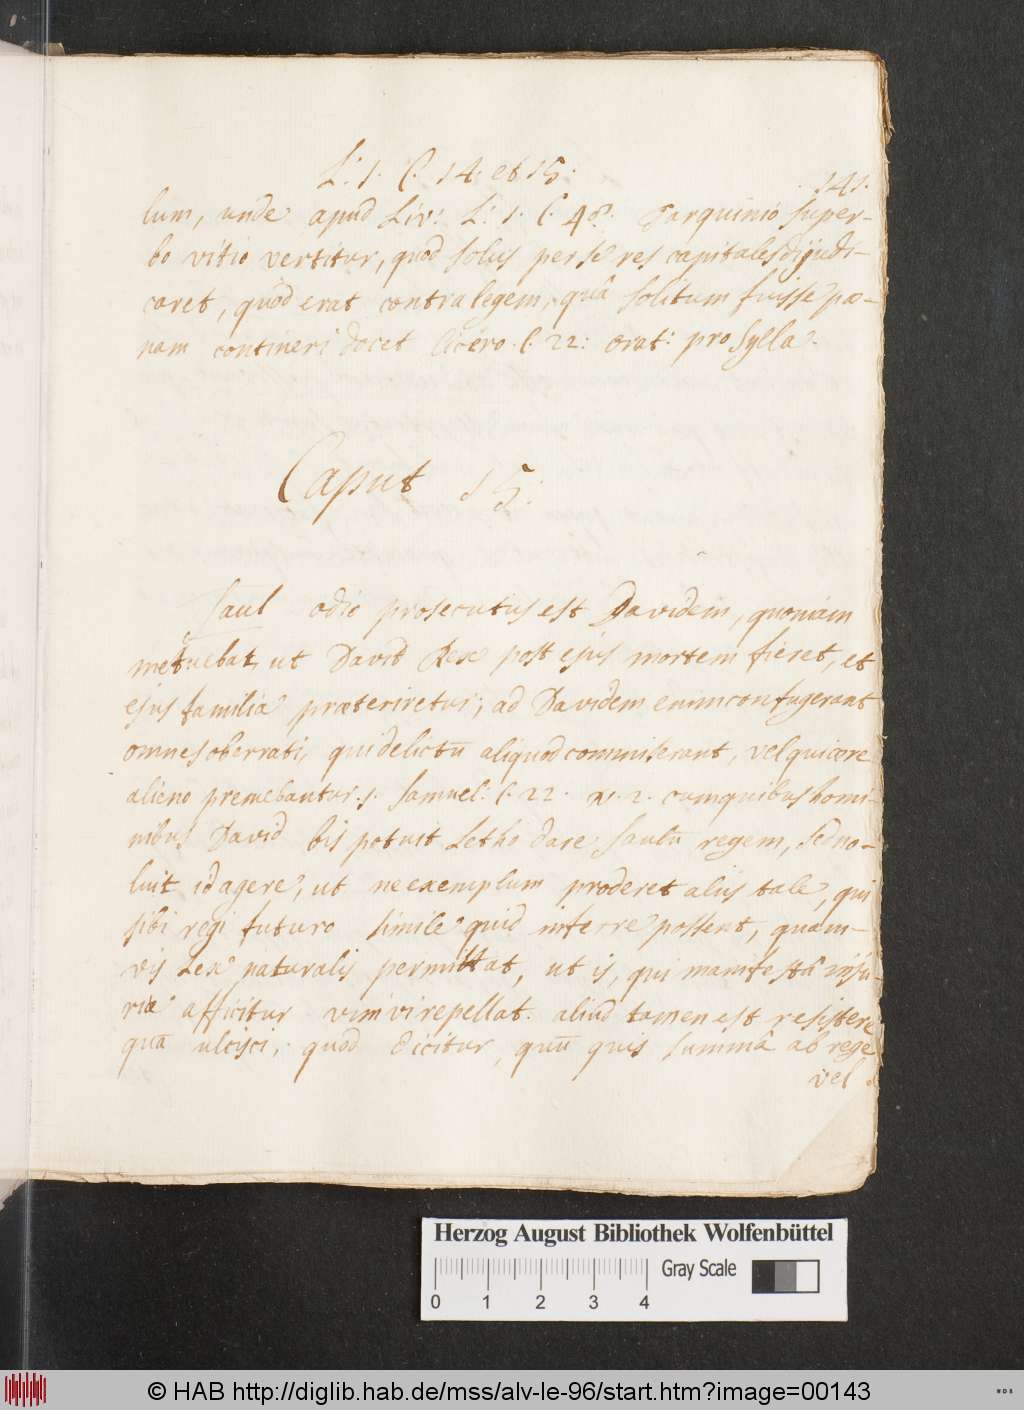 L: 1. C. 14. et 15:
141.
lum, unde apud Liv: L: 1. C. 48. Tarquinio super-
bo vitio vertitur, quod solus per se res capitales dijudi-
caret, quod erat contra legem, quâ solitum fuisse pœ-
nam contineri docet Cicero. C. 22: orat: pro Sylla.
Caput 15:
Saul odio prosecutus est Davidem, quoniam
metuebat, ut David Rex post ejus mortem fieret, et
ejus familia præteriretur; ad Davidem enim confugerant
omnes oberrati, qui delictū aliquod commiserant, vel qui ære
alieno premebantur. 1. Samuel. C. 22. v. 2. cum quibus homi-
nibus David bis potuit Letho dare Saulū regem, sed no-
luit id agere, ut ne exemplum proderet aliis tale, qui
sibi regi futuro simile quid inferre possent, quam-
vis Lex naturalis permittat, ut is, qui manifestâ inju-
riâ afficitur vim vi repellat. aliud tamen est resistere
quā ulcisci, quod dicitur, quū quis summâ ab rege
vel
Herzog August Bibliothek Wolfenbüttel
Gray Scale
0 1 2 3 4
© HAB http://diglib.hab.de/mss/alv-le-96/start.htm?image=00143